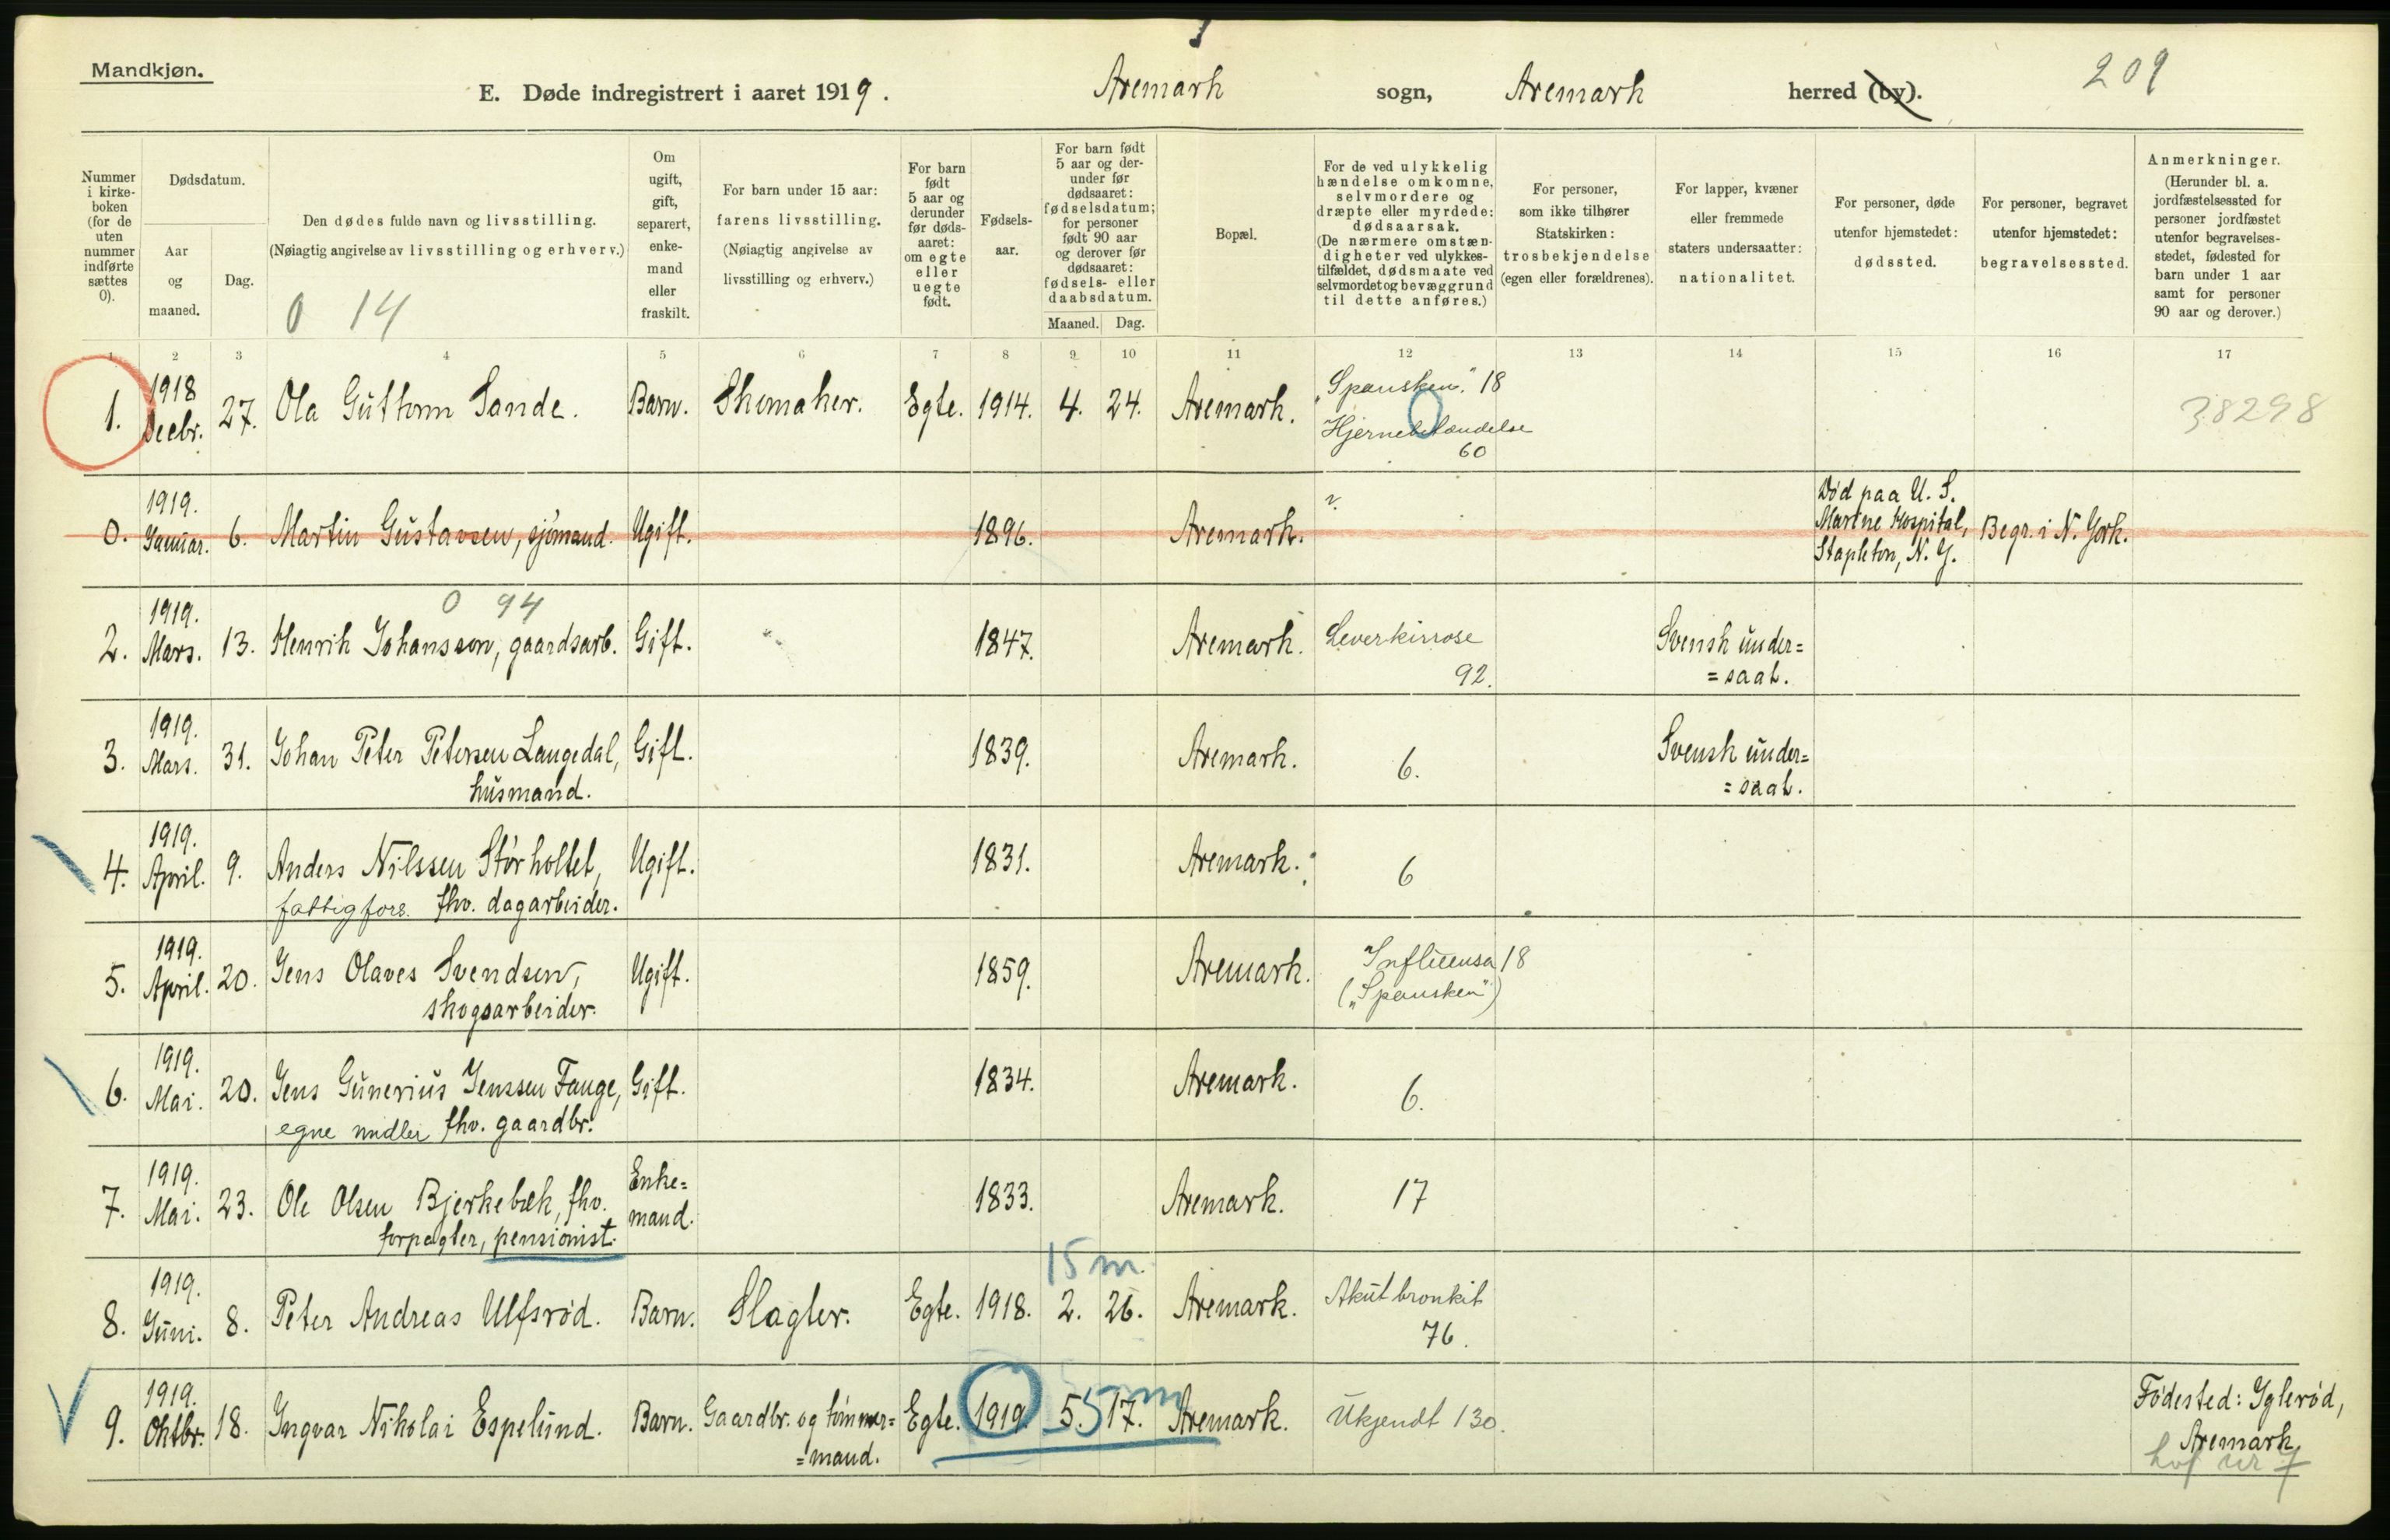 Mandkjøn.
E. Døde indregistrert i aaret 1919. Aremark sogn, Aremark herred (by).
209
Nummer i kirke-boken (for de uten nummer indførte sættes 0).
Dødsdatum.
Aar og maaned.
Dag.
Den dødes fulde navn og livsstilling.
(Nøiagtig angivelse av livsstilling og erhverv.)
0 14
Om ugift, gift, separert, enke-mand eller fraskilt.
For barn under 15 aar: farens livsstilling.
(Nøiagtig angivelse av livsstilling og erhverv.)
For barn født 5 aar og derunder før døds-aaret: om egte eller uegte født.
Fødsels-aar.
For barn født 5 aar og der-under før dødsaaret: fødselsdatum; for personer født 90 aar og derover før dødsaaret: fødsels- eller daabsdatum.
Maaned. Dag.
Bopæl.
For de ved ulykkelig hændelse omkomne, selvmordere og dræpte eller myrdede: dødsaarsak.
(De nærmere omstæn-digheter ved ulykkes-tilfældet, dødsmaate ved selvmordet og bevæggrund til dette anføres.)
For personer, som ikke tilhører Statskirken: trosbekjendelse (egen eller forældrenes).
For lapper, kvæner eller fremmede staters undersaatter: nationalitet.
For personer, døde utenfor hjemstedet: dødssted.
For personer, begravet utenfor hjemstedet: begravelsessted.
Anmerkninger.
(Herunder bl. a. jordfæstelsessted for personer jordfæstet utenfor begravelses-stedet, fødested for barn under 1 aar samt for personer 90 aar og derover.)
1 2 3 4 5 6 7 8 9 10 11 12 13 14 15 16 17
1. 1918 Decbr. 27. Ola Guttorm Sande. Barn. Skomaker. Egte. 1914. 4. 24. Aremark. „Spansken." 18
Hjernebetændelse
60
38298
0. 1919. Januar. 6. Martin Gustavsen, sjømand. Ugift. 1896. Aremark. Død paa U. S.
Marine Hospital, Begr. i N. York.
Stapleton, N. Y.
0 94
2. 1919. Mars. 13. Henrik Johansson, gaardsarb. Gift. 1847. Aremark. Leverkirrose Svensk under=
92. =saat.
3. 1919. Mars. 31. Johan Peter Petersen Langedal, Gift. 1839. Aremark. 6. Svensk under=
husmand. =saat.
4. 1919. April. 9. Anders Nilssen Størholtet, Ugift. 1831. Aremark. 6
fattigfors. fhv. dagarbeider.
5. 1919. April. 20. Jens Olaves Svendsen, Ugift. 1859. Aremark. Influensa 18
skogsarbeider. („Spansken")
6. 1919. Mai. 20. Jens Gunerius Jenssen Fange, Gift. 1834. Aremark. 6.
egne midler fhv. gaardbr.
7. 1919. Mai. 23. Ole Olsen Bjerkebæk, fhv. Enke=mand. 1833. Aremark. 17
forpagter, pensionist.
15 m.
8. 1919. Juni. 8. Peter Andreas Ulfsrød. Barn. Slagter. Egte. 1918. 2. 26. Aremark. Akut bronkit
76.
9. 1919. Oktbr. 18. Ingvar Nikolai Espelund. Barn. Gaardbr. og tømmer= Egte. 1919. 5. 17. Aremark. Ukjendt 130. Fødested: Iglerød,
=mand. Aremark.
5 m